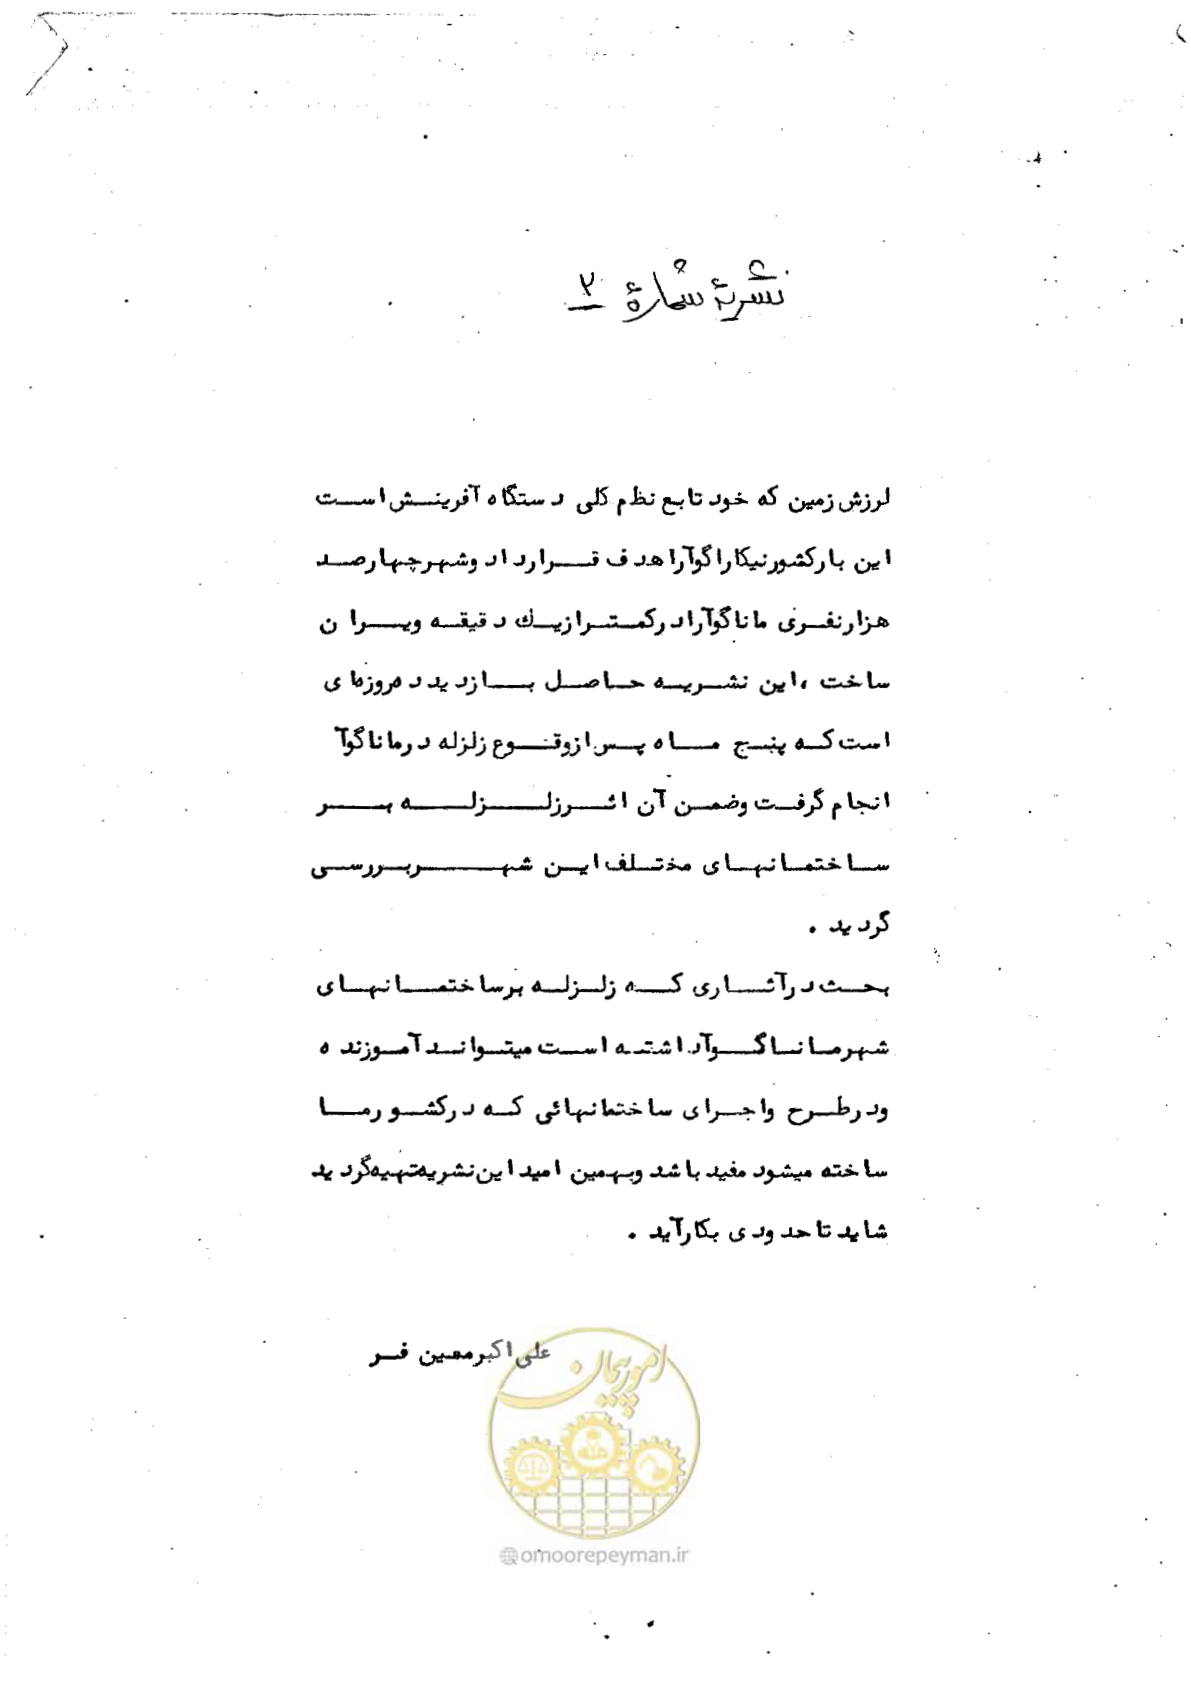 نشریهٔ شمارهٔ ۲
لرزش زمین که خود تابع نظم کلی دستگاه آفرینش است
این بار کشور نیکاراگوآ را هدف قرار داد و شهر چهارصد
هزار نفری ماناگوآ را در کمتر از یك دقیقه ویران
ساخت ، این نشریه حاصل بازدید ده روزه ای
است که پنج ماه پس از وقوع زلزله در ماناگوآ
انجام گرفت و ضمن آن اثر زلزله بر
ساختمانهای مختلف این شهر بررسی
گردید .
بحث در آثاری که زلزله بر ساختمانهای
شهر ماناگوآ داشته است میتواند آموزنده
و در طرح و اجرای ساختمانهائی که در کشور ما
ساخته میشود مفید باشد و بهمین امید این نشریه تهیه گردید
شاید تا حدودی بکار آید .
علی اکبر معین فر
امور پیمان
@omoorepeyman.ir